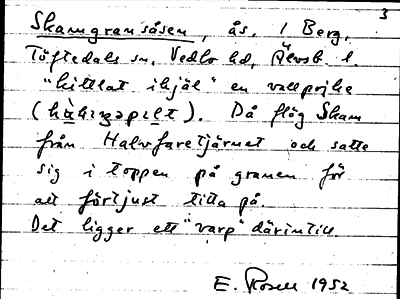 3
Skamgransåsen, ås, i Berg,
Töftedals sn, Vedbo hd, Älvsb. l.
"kittlat ihjäl" en vallpojke
Då flög Skam
från Halvfaretjärnet och satte
sig i toppen på granen för
att förtjust titta på.
Det ligger ett "varp" därintill.
E. Rosell 1952